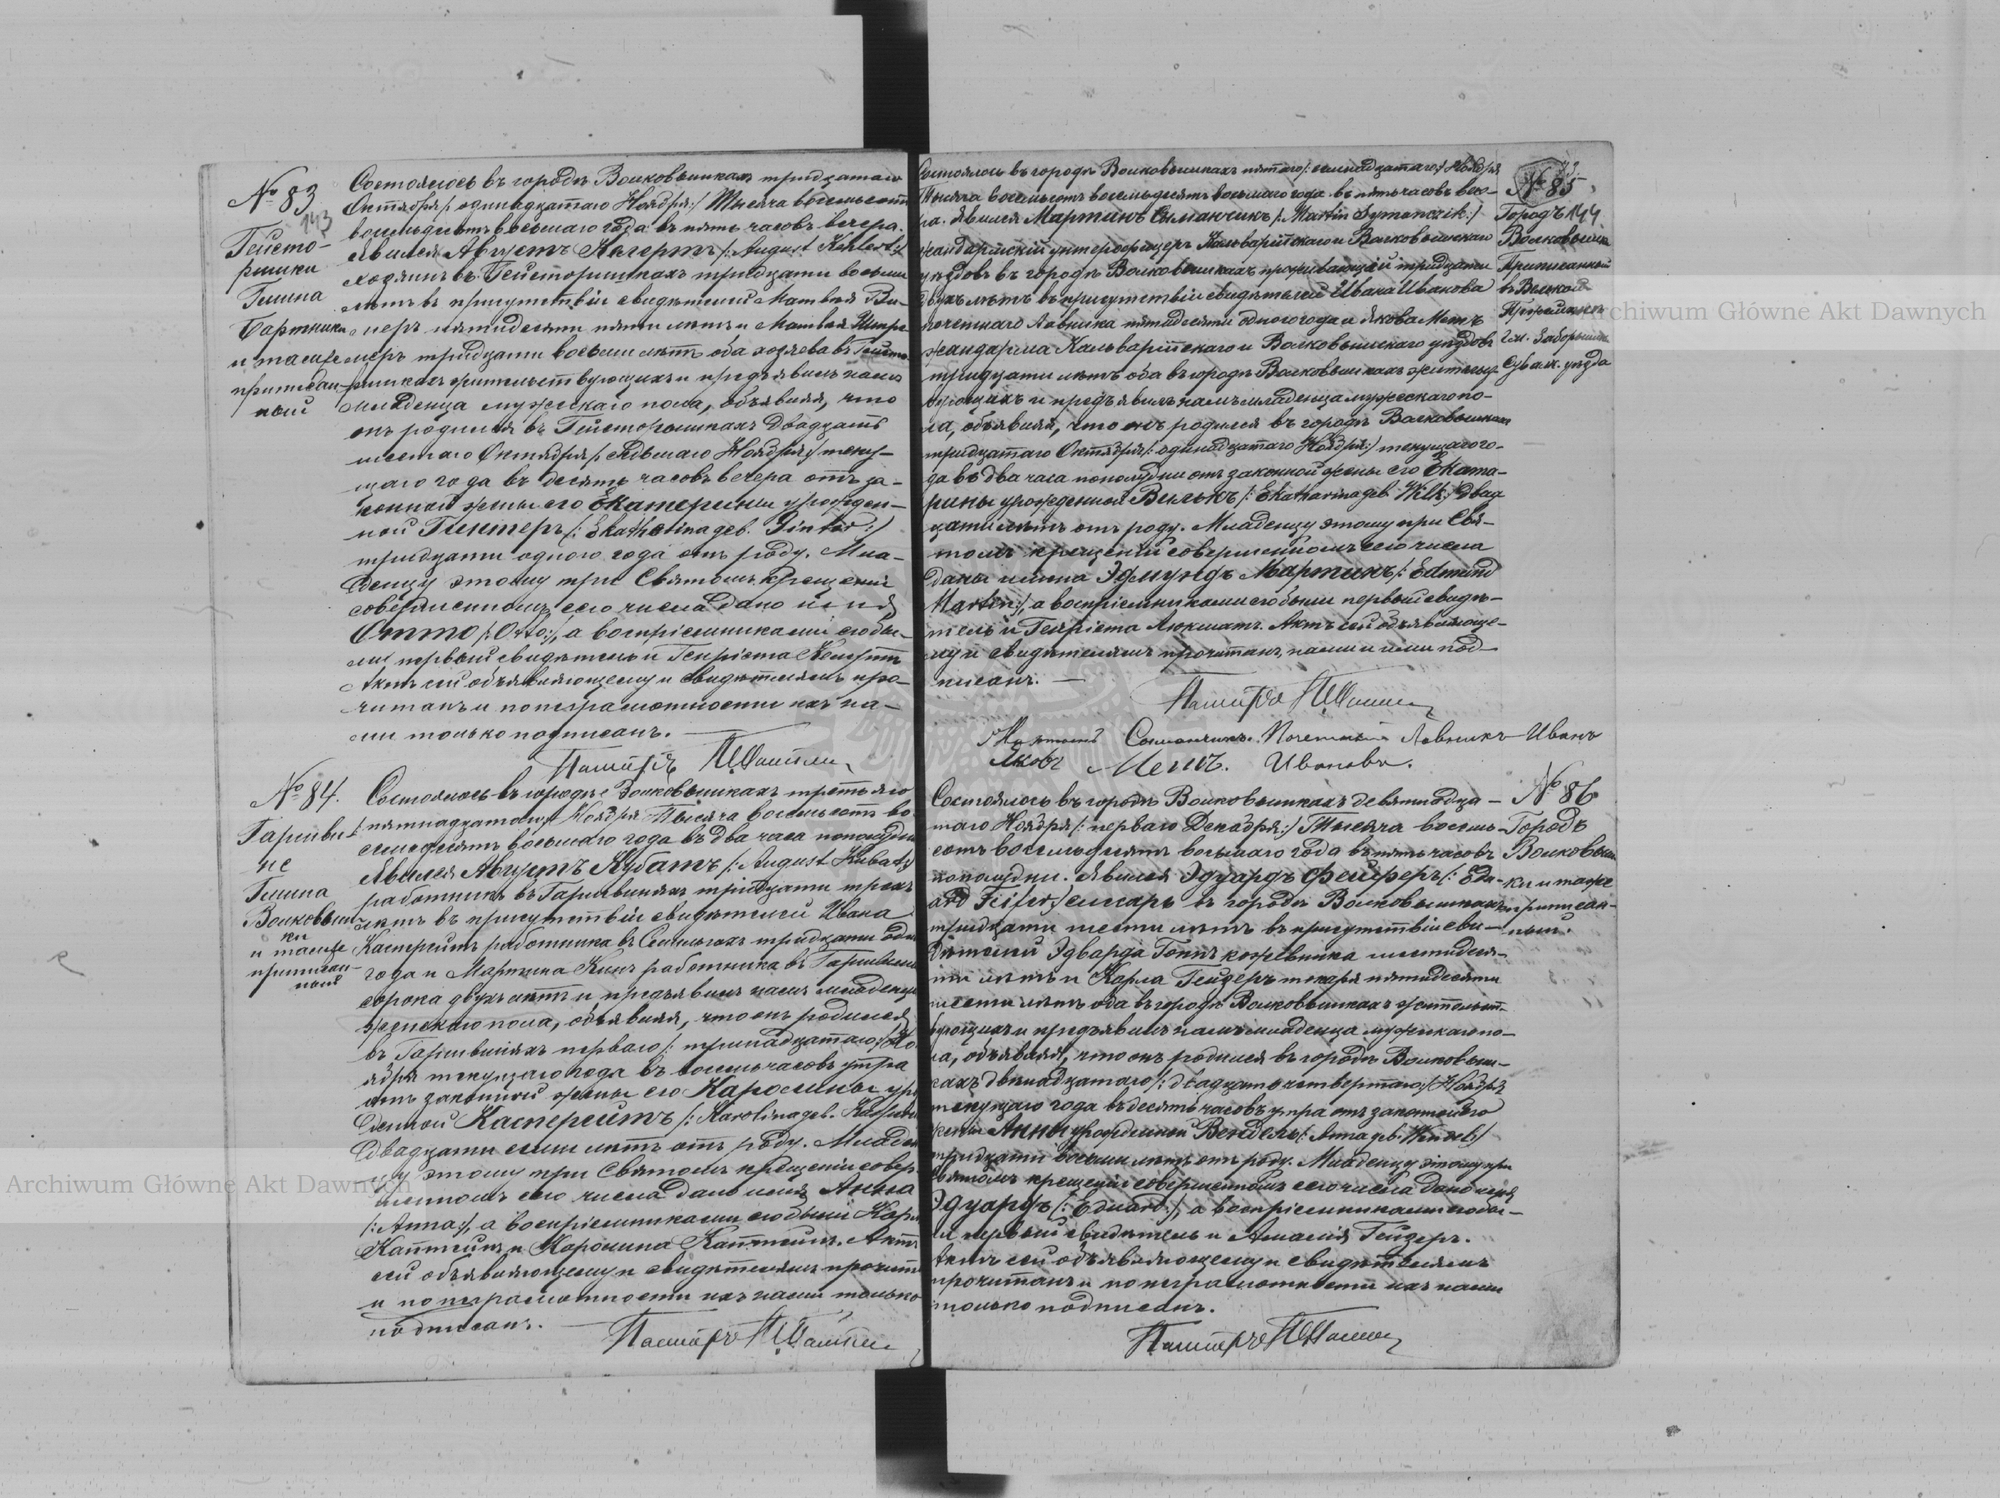 № 83
143
Гейсто-
ришки
Гмина
Бартники
и также
приписан-
ный
Состоялось въ городѣ Волковышкахъ тридцатаго
Октября /: одинадцатаго Ноября:/ Тысяча восемьсотъ
восемьдесятъ восьмаго года въ пять часовъ вечера.
Явился Августъ Келертъ /: August Kehlert:/
хозяинъ въ Гейсторишкахъ тридцати восьми
лѣтъ въ присутствіи свидѣтелей Матвѣя
пятидесяти пяти лѣтъ и Матвѣя
тридцати восьми лѣтъ оба хозяева въ Гейсто-
ришкахъ жительствующихъ и предъявилъ намъ
младенца мужескаго пола, объявляя, что
онъ родился въ Гейсторишкахъ двадцать
шестаго Октября /: седьмаго Ноября:/ теку-
щаго года въ десять часовъ вечера отъ за-
конной жены его Екатерины урожден-
ной Гинтеръ /: Ekatherina geb. Ginter:/
тридцати одного года отъ роду. Мла-
денцу этому при Святомъ крещеніи
совершенномъ сего числа дано имя
Отто /: Otto:/, а воспріемниками его бы-
ли первый свидѣтель и Генріета Келертъ
Актъ сей объявляющему и свидѣтелямъ про-
читанъ и по неграмотности ихъ на-
ми только подписанъ.
Пасторъ
№ 84.
Гмина
Волковыш-
ки
и также
приписан-
ный
Состоялось въ городѣ Волковышкахъ третьяго
/: пятнадцатаго:/ Ноября Тысяча восемьсотъ во-
семьдесятъ восьмаго года въ два часа пополудни
Явился Августъ Кубатъ /: August Kubat:/
работникъ въ тридцати трехъ
лѣтъ въ присутствіи свидѣтелей Ивана
Касперейтъ работника въ тридцати одного
года и Мартина работника въ
сорока двухъ лѣтъ и предъявилъ намъ младенца
женскаго пола, объявляя, что онъ родился
въ перваго /: тринадцатаго:/ Но-
ября текущаго года въ восемь часовъ утра
отъ законной жены его Каролины урож-
денной Касперейтъ /: Karolina geb.
двадцати семи лѣтъ отъ роду. Младен-
цу этому при Святомъ крещеніи совер-
шенномъ сего числа дано имя Анна
/: Anna:/, а воспріемниками его были Карлъ
и Каролина Актъ
сей объявляющему и свидѣтелямъ прочитанъ
и по неграмотности ихъ нами только
подписанъ.
Пасторъ
№ 85
Городъ 144
Волковышки
Приписанный
въ
Гм.
Сувалк. уѣзда
Состоялось въ городѣ Волковышкахъ пятаго /: семнадцатаго:/ Ноября
Тысяча восемьсотъ восемьдесятъ восьмаго года въ пять часовъ вече-
ра. Явился Мартинъ Сыманчикъ /: Martin Symanczik:/
жандармскій унтерофицеръ Кальварійскаго и Волковышскаго
уѣздовъ въ городѣ Волковышкахъ проживающій тридцати
двухъ лѣтъ въ присутствіи свидѣтелей Ивана Иванова
почетнаго Лавника пятидесяти одного года и Якова Метъ
жандарма Кальварійскаго и Волковышскаго уѣздовъ
тридцати лѣтъ оба въ городѣ Волковышкахъ жительст-
вующихъ и предъявилъ намъ младенца мужескаго по-
ла, объявляя, что онъ родился въ городѣ Волковышкахъ
тридцатаго Октября /: одинадцатаго Ноября:/ текущаго го-
да въ два часа пополудни отъ законной жены его Еката-
рины урожденной Вилькъ /: Ekatharina geb. Wilk:/ двад-
цати лѣтъ отъ роду. Младенцу этому при Свя-
томъ крещеніи совершенномъ сего числа
даны имена Эдмундъ Мартинъ /: Edmund
Martin:/, а воспріемниками его были первый свидѣ-
тель и Генріета Актъ сей объявляюще-
му и свидѣтелямъ прочитанъ, нами и ими под-
писанъ.
Пасторъ
Мартинъ Сыманчикъ. Почетный Лавникъ Иванъ
Яковъ Метъ. Ивановъ.
№ 86
Городъ
Волковыш-
ки и также
приписан-
ный.
Состоялось въ городѣ Волковышкахъ девятнадца-
таго Ноября /: перваго Декабря:/ Тысяча восемь-
сотъ восемьдесятъ восьмаго года въ пять часовъ
пополудни. Явился Эдуардъ Фейферъ /: Edu-
ard Feifer:/ въ городѣ Волковышкахъ
тридцати шести лѣтъ въ присутствіи сви-
дѣтелей Эдварда Гоппъ кожевника шестидеся-
ти лѣтъ и Карла Гейзеръ токаря пятидесяти
шести лѣтъ оба въ городѣ Волковышкахъ жительст-
вующихъ и предъявилъ намъ младенца мужескаго по-
ла, объявляя, что онъ родился въ городѣ Волковыш-
кахъ двѣнадцатаго /: двадцать четвертаго:/ Ноября
текущаго года въ десять часовъ утра отъ законной его
жены Анны урожденной Вендель /: Anna geb. Wendel:/
тридцати восьми лѣтъ отъ роду. Младенцу этому при
Святомъ крещеніи совершенномъ сего числа дано имя
Эдуардъ /: Eduard:/, а воспріемниками его бы-
ли первый свидѣтель и Амалія Гейзеръ.
Актъ сей объявляющему и свидѣтелямъ
прочитанъ и по неграмотности ихъ нами
только подписанъ.
Пасторъ
Archiwum Główne Akt Dawnych
Archiwum Główne Akt Dawnych